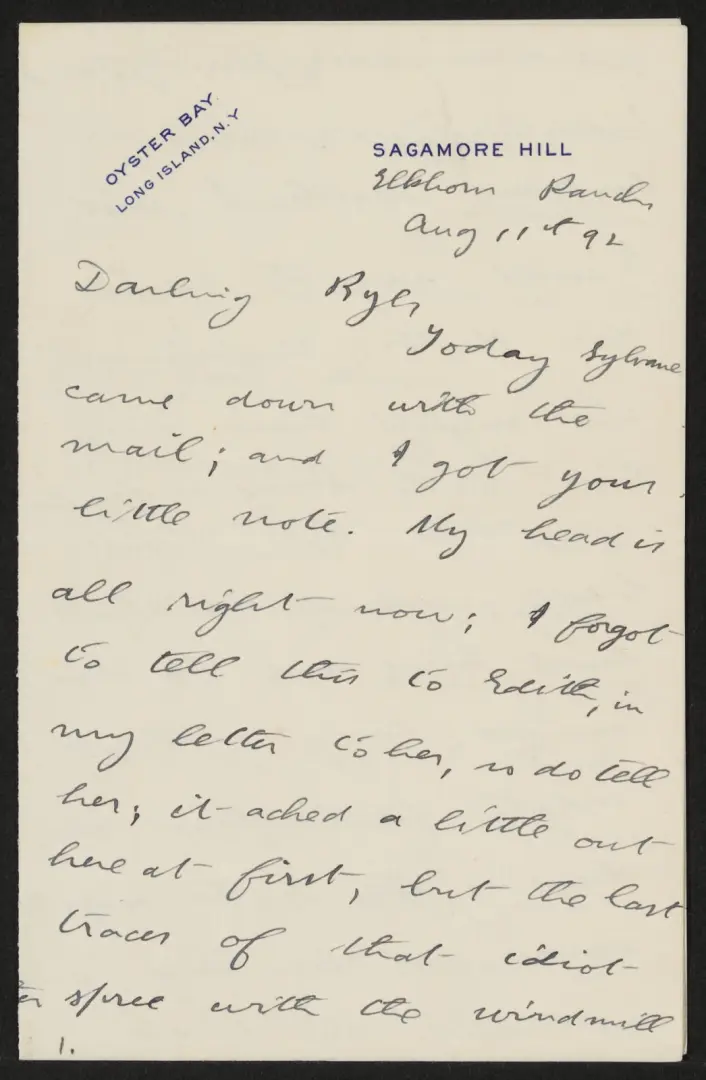 OYSTER BAY
LONG ISLAND, N.Y.
SAGAMORE HILL
Elkhorn Ranch
Aug 11th 92
Darling
Today Sylvane
came down with the
mail; and I got your
little note. My head is
all right now; I forgot
to tell this to Edith, in
my letter to her, so do tell
her; it ached a little out
here at first, but the last
traces of that idiot
spree with the windmill
1.